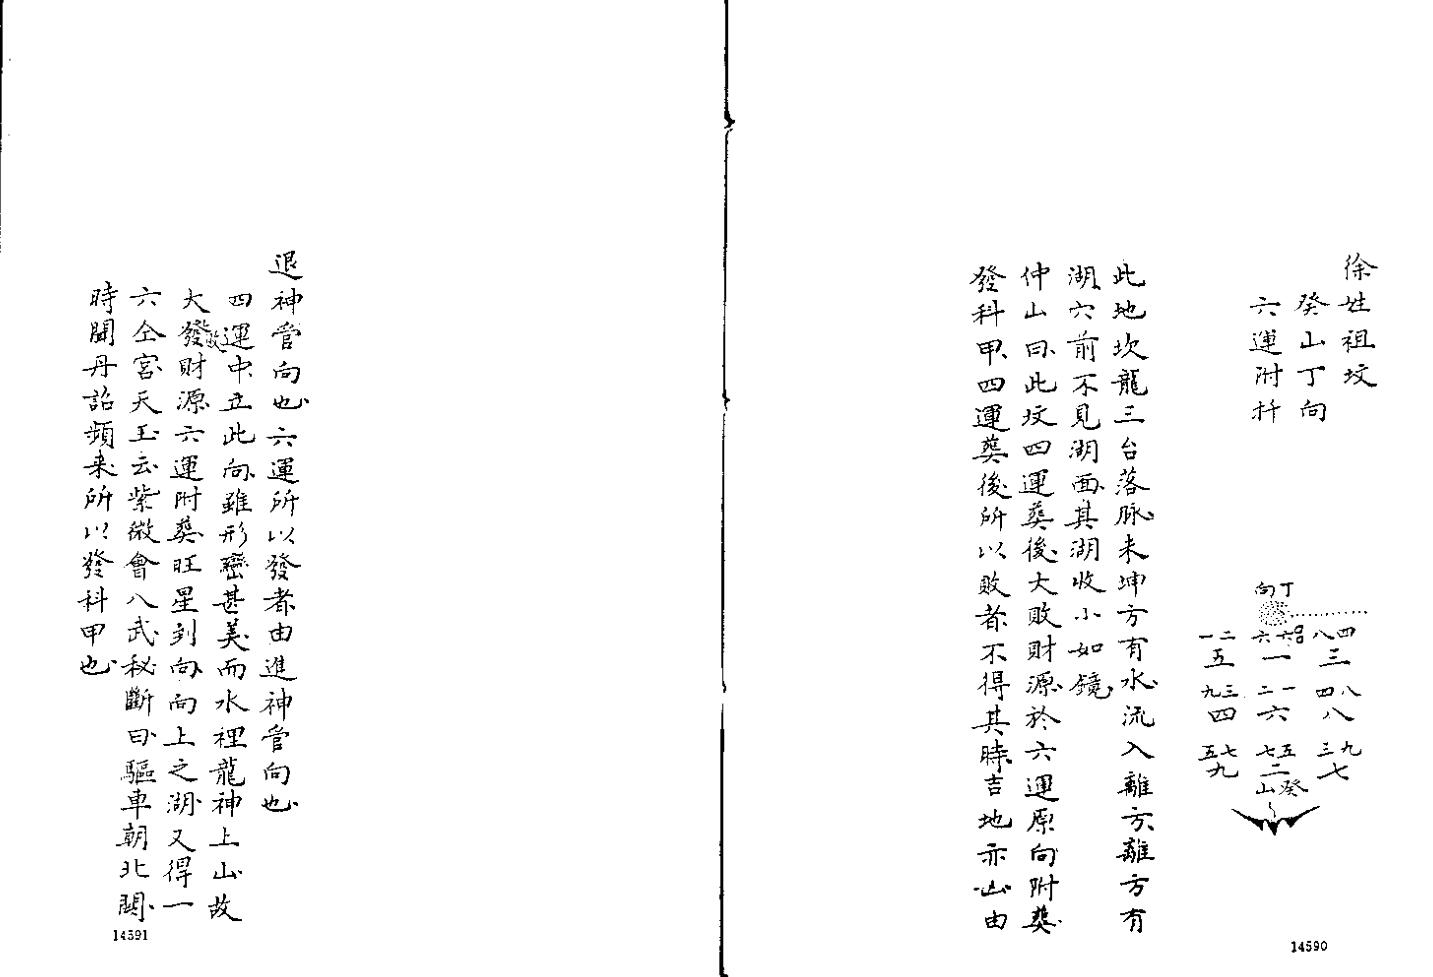 徐姓祖坟
癸山丁向
六運附扦
向丁
一二 六六 八四
五 一 三
九三 二一 四八
四 六 八
五七 七五 三九
九 二 七
山癸
此地坎龍三台落脉未坤方有水流入離方離方有
湖穴前不見湖面其湖收小如鏡
仲山曰此坟四運葬後大敗財源於六運原向附葬
發科甲四運葬後所以敗者不得其時吉地亦凶由
14590
退神管向也六運所以發者由進神管向也
四運中立此向雖形巒甚美而水裡龍神上山故
大發敗財源六運附葬旺星到向向上之湖又得一
六仝宮天玉云紫微會八武秘斷曰驅車朝北闕
時聞丹詔頻來所以發科甲也
14591